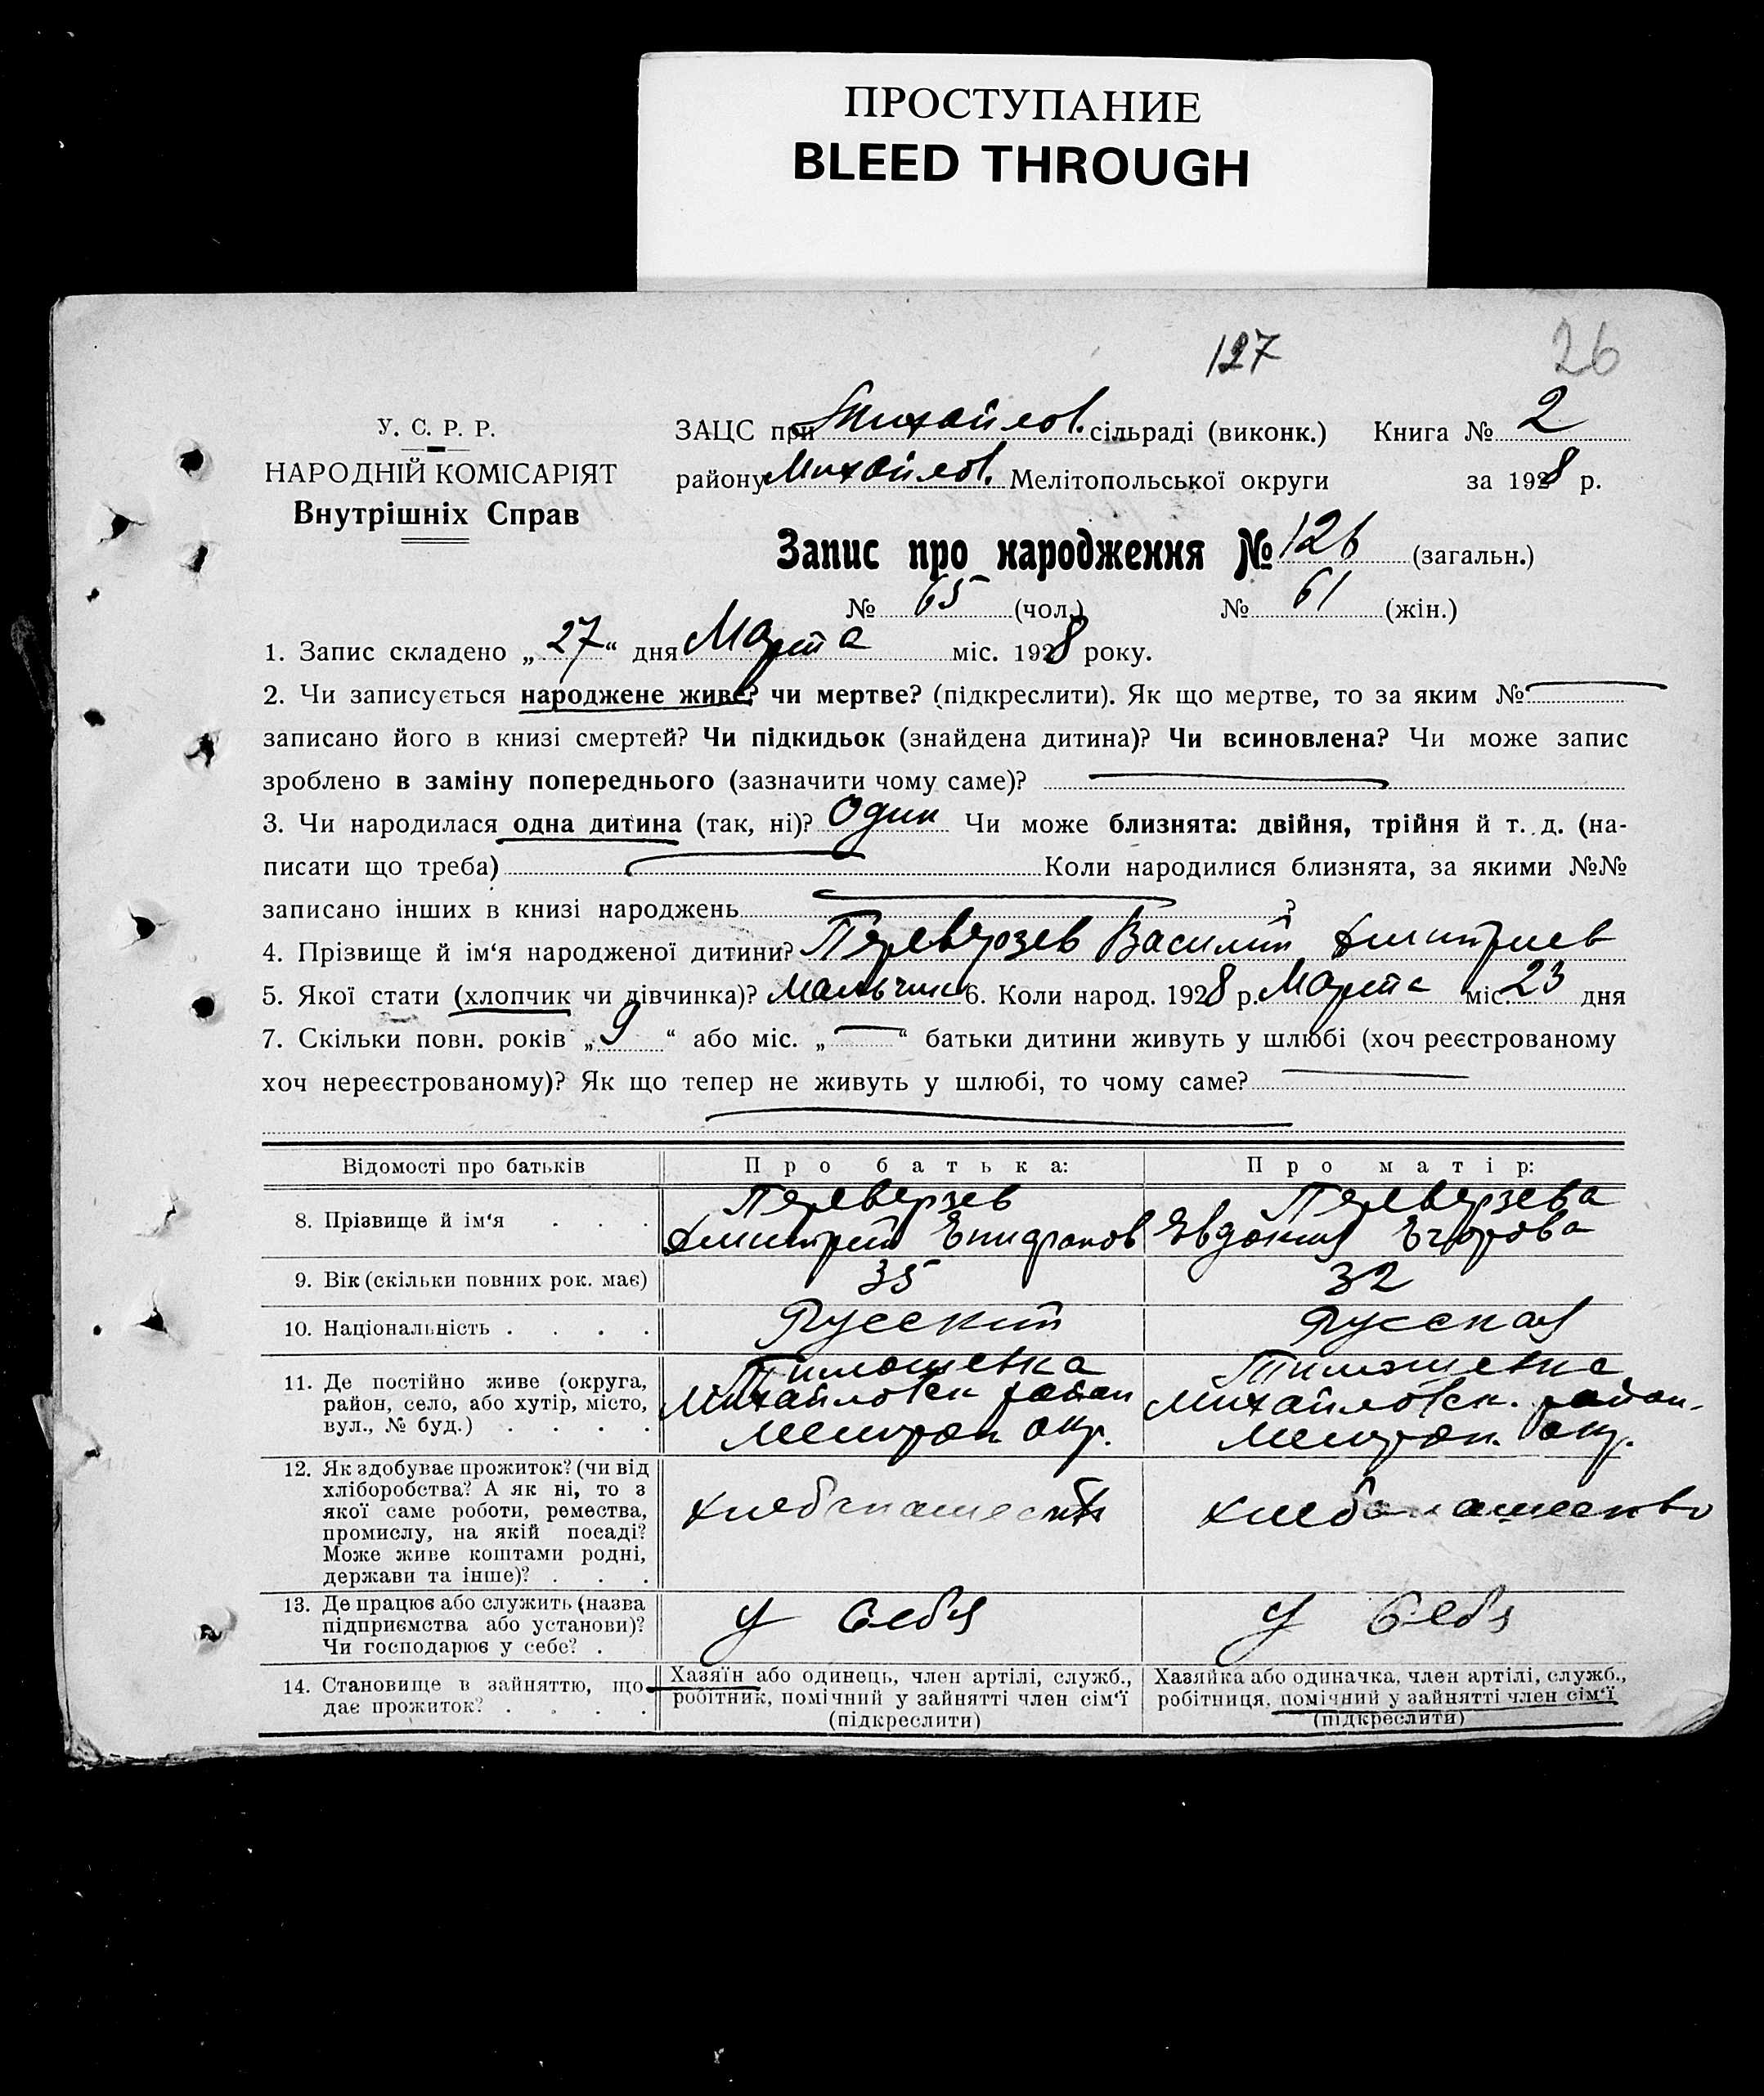 ПРОСТУПАНИЕ
BLEED THROUGH
127
26
У. С. Р. Р.
НАРОДНІЙ КОМІСАРІЯТ
Внутрішніх Справ
ЗАЦС при Михайлов. сільраді (виконк.) Книга № 2
району Михайлов. Мелітопольської округи за 1928 р.
Запис про народження № 126 (загальн.)
№ 65 (чол.) № 61 (жін.)
1. Запис складено „27“ дня Марта міс. 1928 року.
2. Чи записується народжене живе? чи мертве? (підкреслити). Як що мертве, то за яким №
записано його в книзі смертей? Чи підкидьок (знайдена дитина)? Чи всиновлена? Чи може запис
зроблено в заміну попереднього (зазначити чому саме)?
3. Чи народилася одна дитина (так, ні)? Один Чи може близнята: двійня, трійня й т. д. (на-
писати що треба) Коли народилися близнята, за якими №№
записано інших в книзі народжень ?
4. Прізвище й ім‘я народженої дитини? Переверзев Василий Дмитриев
5. Якої стати (хлопчик чи дівчинка)? Мальчик 6. Коли народ. 1928 р. Марта міс. 23 дня
7. Скільки повн. років „9“ або міс. „ “ батьки дитини живуть у шлюбі (хоч реєстрованому
хоч нереєстрованому)? Як що тепер не живуть у шлюбі, то чому саме?
Відомості про батьків Про батька: Про матір:
8. Прізвище й ім‘я . . . Переверзев Дмитрий Епифанов Переверзева Евдокия Егорова
9. Вік (скільки повних рок. має) 35 32
10. Національність . . . . Русский Русская
11. Де постійно живе (округа, район, село, або хутір, місто, вул., № буд.) . . . . Тимошевка Михайловск район Мелитоп окр. Тимошевка Михайловск. район. Мелитоп. окр.
12. Як здобуває прожиток? (чи від хліборобства? А як ні, то з якої саме роботи, ремества, промислу, на якій посаді? Може живе коштами родні, держави та інше)? . . . хлебопашество хлебопашество
13. Де працює або служить (назва підприємства або установи)? Чи господарює у себе? . у себя у себя
14. Становище в зайняттю, що дає прожиток? . . . . Хазяїн або одинець, член артілі, служб., робітник, помічний у зайнятті член сім‘ї (підкреслити) Хазяйка або одиначка, член артілі, служб., робітниця, помічний у зайнятті член сім‘ї (підкреслити)